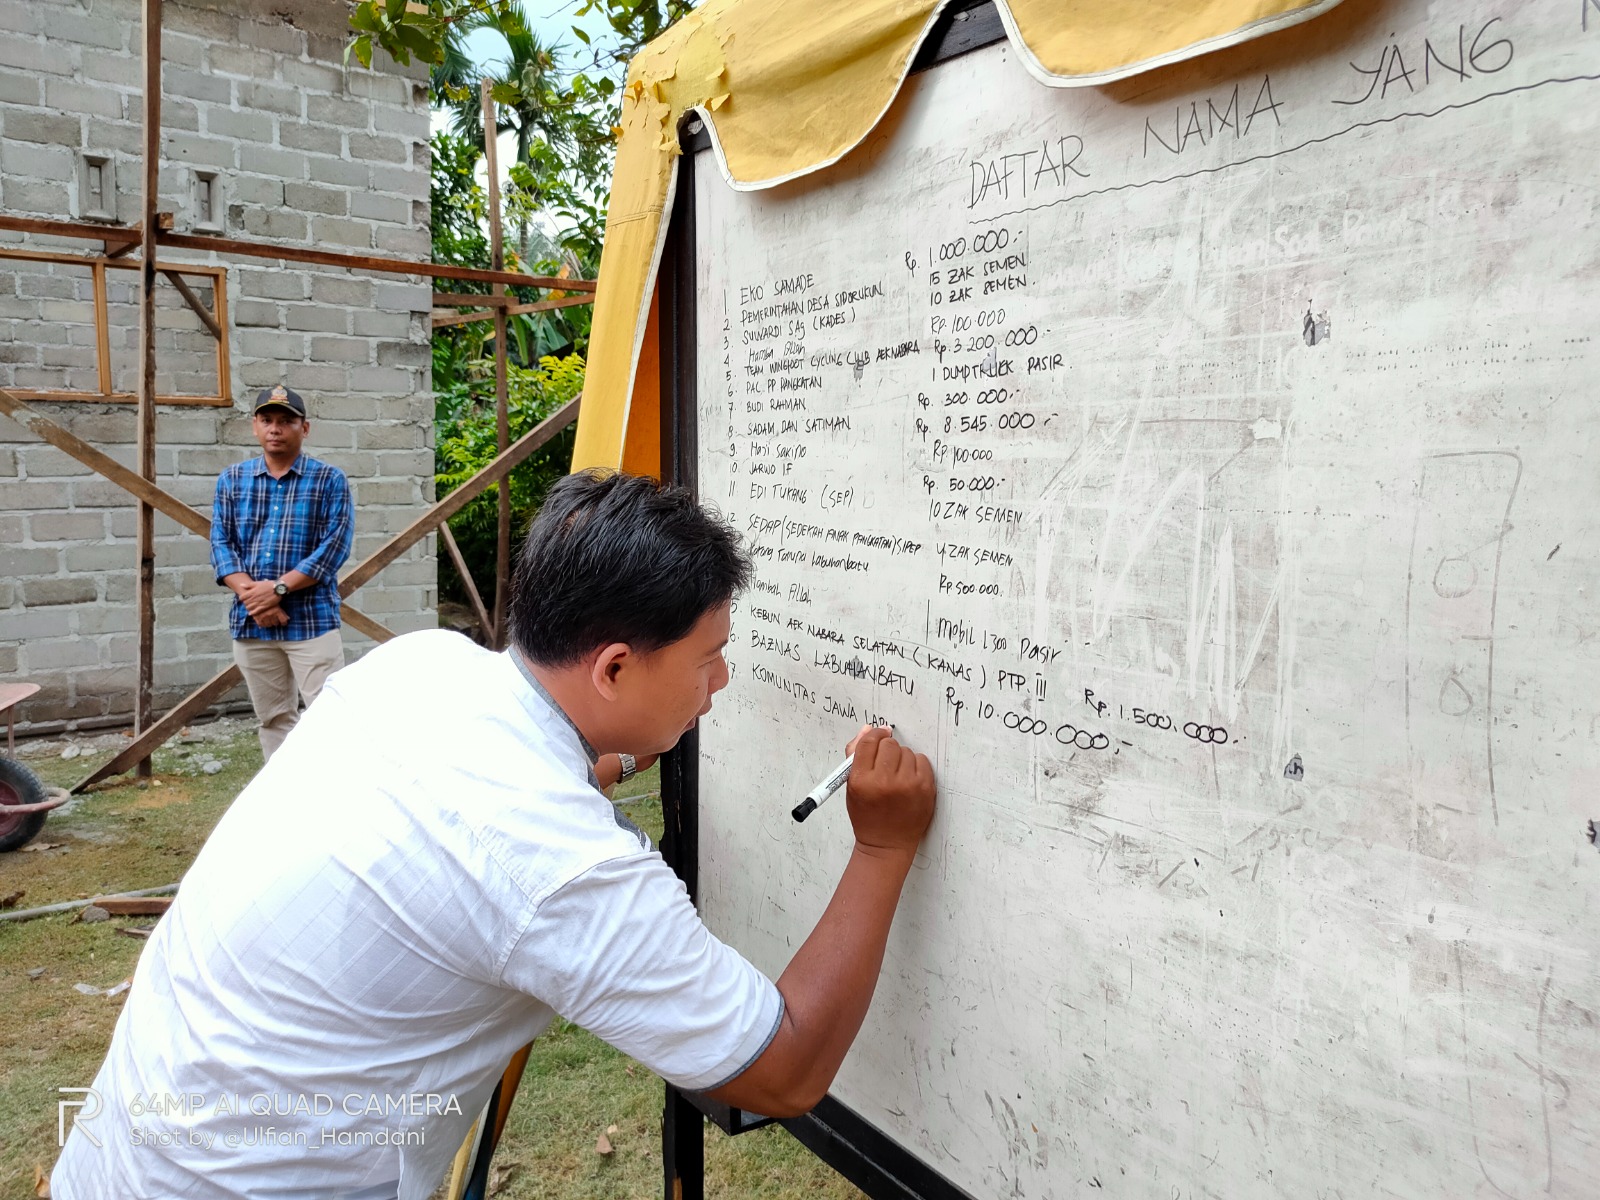 DAFTAR NAMA YANG
1 EKO SAMADE Rp. 1.000.000,-
2. PEMERINTAHAN DESA SIDORUKUN 15 ZAK SEMEN
3. SUWARDI SAg (KADES) 10 ZAK SEMEN.
4 Hamba Allah Rp. 100.000
5. TEAM WINGFOOT CYCLING CLUB AEKNABARA Rp. 3.200.000,-
6. PAC. PP PANGKATAN 1 DUMPTRUCK PASIR.
7. BUDI RAHMAN Rp. 300.000,-
8. SADAM DAN SATIMAN Rp. 8.545.000,-
9. Haji Sakino Rp. 100.000
10. JARWO IF Rp. 50.000,-
11 EDI TUKANG (SEP) 10 ZAK SEMEN
12 SEDAP (SEDEKAH ANAK PANGKATAN) SIPEP 4 ZAK SEMEN
Karang Taruna Labuhanbatu Rp 500.000.
Hambah Allah 1 Mobil L300 Pasir
5. KEBUN AEK NABARA SELATAN (KANAS) PTP. III Rp. 1.500.000,-
6. BAZNAS LABUHANBATU Rp. 10.000.000,-
7 KOMUNITAS JAWA LABU
R 64MP AI QUAD CAMERA
Shot by @Ulfian_Hamdani